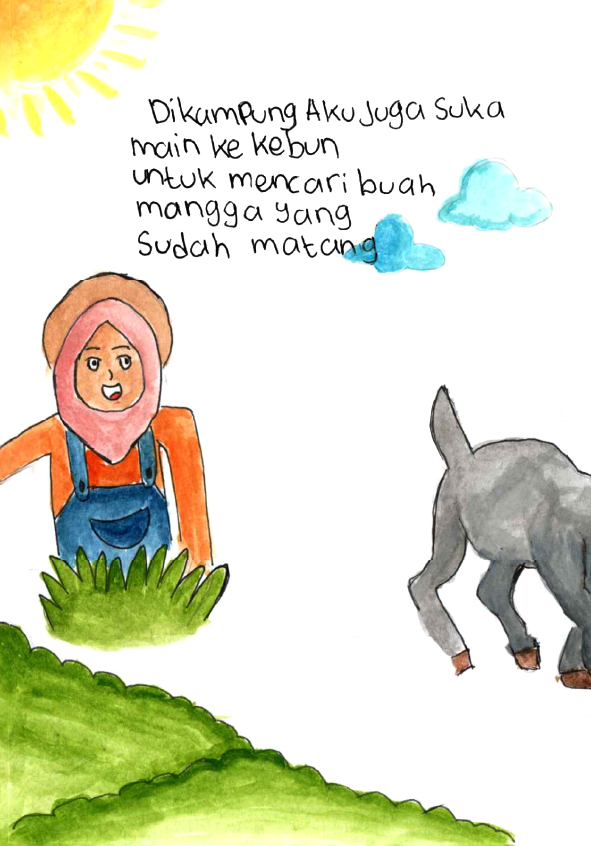 Dikampung Aku Juga Suka
main ke kebun
untuk mencari buah
mangga yang
Sudah matang